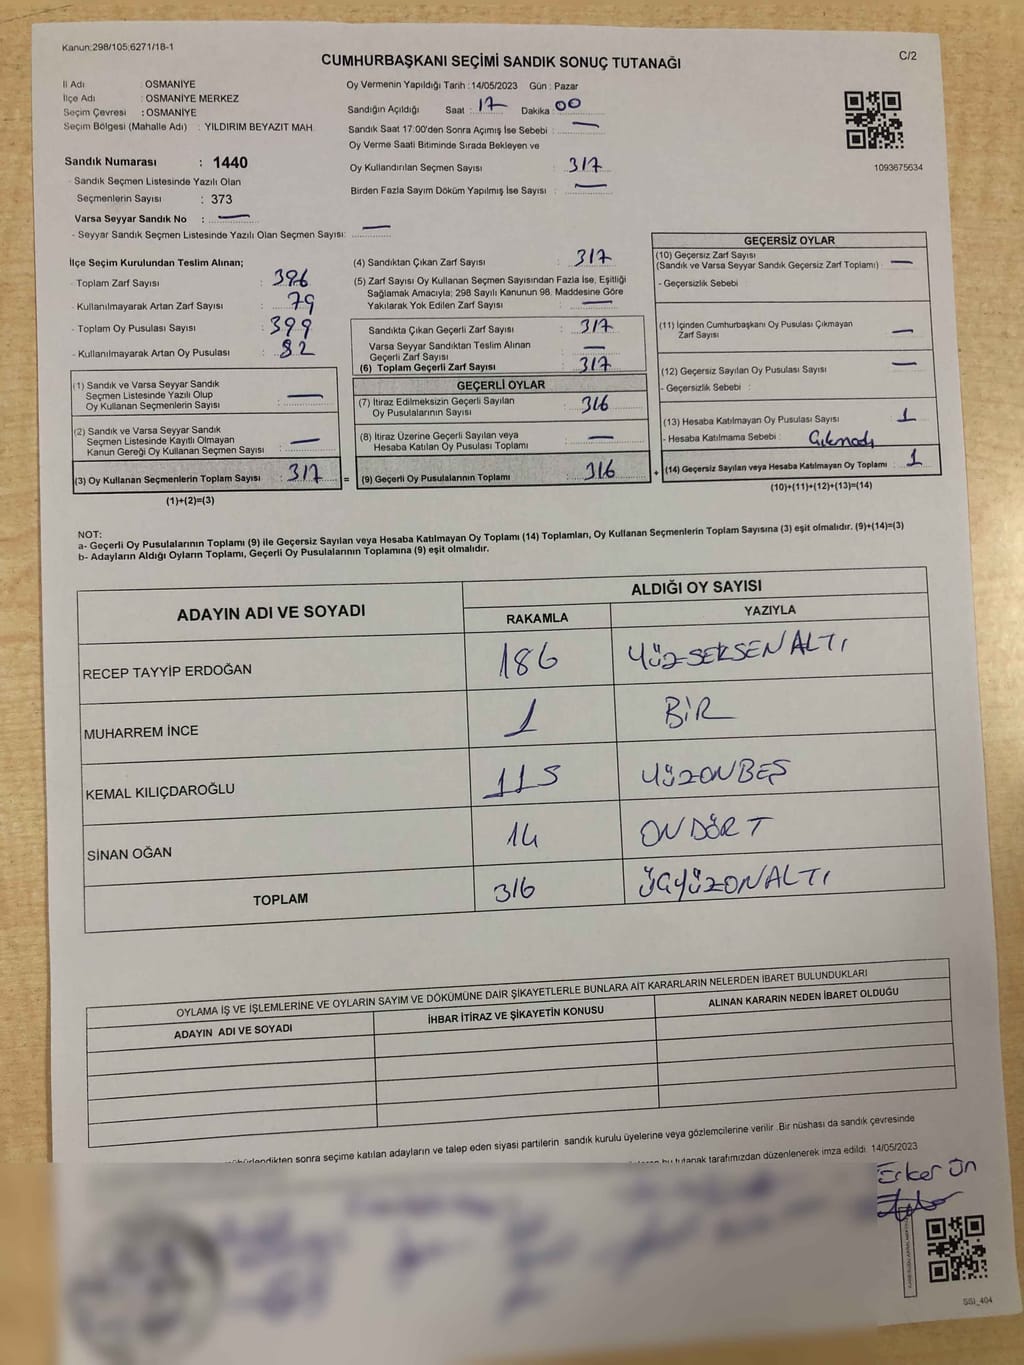 Kanun:298/105;6271/18-1
C/2
CUMHURBAŞKANI SEÇİMİ SANDIK SONUÇ TUTANAĞI
İl Adı : OSMANİYE
İlçe Adı : OSMANİYE MERKEZ
Seçim Çevresi : OSMANİYE
Seçim Bölgesi (Mahalle Adı) : YILDIRIM BEYAZIT MAH.
Sandık Numarası : 1440
- Sandık Seçmen Listesinde Yazılı Olan
Seçmenlerin Sayısı : 373
Varsa Seyyar Sandık No : —
- Seyyar Sandık Seçmen Listesinde Yazılı Olan Seçmen Sayısı: —
Oy Vermenin Yapıldığı Tarih : 14/05/2023 Gün : Pazar
Sandığın Açıldığı Saat : 17 Dakika : 00
Sandık Saat 17:00'den Sonra Açımış İse Sebebi : —
Oy Verme Saati Bitiminde Sırada Bekleyen ve
Oy Kullandırılan Seçmen Sayısı : 317
Birden Fazla Sayım Döküm Yapılmış İse Sayısı : —
1093675634
İlçe Seçim Kurulundan Teslim Alınan;
- Toplam Zarf Sayısı : 396
- Kullanılmayarak Artan Zarf Sayısı : 79
- Toplam Oy Pusulası Sayısı : 399
- Kullanılmayarak Artan Oy Pusulası : 82
(1) Sandık ve Varsa Seyyar Sandık
Seçmen Listesinde Yazılı Olup
Oy Kullanan Seçmenlerin Sayısı : —
(2) Sandık ve Varsa Seyyar Sandık
Seçmen Listesinde Kayıtlı Olmayan
Kanun Gereği Oy Kullanan Seçmen Sayısı : —
(3) Oy Kullanan Seçmenlerin Toplam Sayısı : 317 =
(1)+(2)=(3)
(4) Sandıktan Çıkan Zarf Sayısı : 317
(5) Zarf Sayısı Oy Kullanan Seçmen Sayısından Fazla İse, Eşitliği
Sağlamak Amacıyla; 298 Sayılı Kanunun 98. Maddesine Göre
Yakılarak Yok Edilen Zarf Sayısı : —
Sandıkta Çıkan Geçerli Zarf Sayısı : 317
Varsa Seyyar Sandıktan Teslim Alınan
Geçerli Zarf Sayısı : —
(6) Toplam Geçerli Zarf Sayısı : 317
GEÇERLİ OYLAR
(7) İtiraz Edilmeksizin Geçerli Sayılan
Oy Pusulalarının Sayısı : 316
(8) İtiraz Üzerine Geçerli Sayılan veya
Hesaba Katılan Oy Pusulası Toplamı : —
(9) Geçerli Oy Pusulalarının Toplamı : 316 +
GEÇERSİZ OYLAR
(10) Geçersiz Zarf Sayısı
(Sandık ve Varsa Seyyar Sandık Geçersiz Zarf Toplamı) : —
- Geçersizlik Sebebi :
(11) İçinden Cumhurbaşkanı Oy Pusulası Çıkmayan
Zarf Sayısı : —
(12) Geçersiz Sayılan Oy Pusulası Sayısı : —
- Geçersizlik Sebebi :
(13) Hesaba Katılmayan Oy Pusulası Sayısı : 1
- Hesaba Katılmama Sebebi : Çıkmadı
(14) Geçersiz Sayılan veya Hesaba Katılmayan Oy Toplamı : 1
(10)+(11)+(12)+(13)=(14)
NOT:
a- Geçerli Oy Pusulalarının Toplamı (9) ile Geçersiz Sayılan veya Hesaba Katılmayan Oy Toplamı (14) Toplamları, Oy Kullanan Seçmenlerin Toplam Sayısına (3) eşit olmalıdır. (9)+(14)=(3)
b- Adayların Aldığı Oyların Toplamı, Geçerli Oy Pusulalarının Toplamına (9) eşit olmalıdır.
ADAYIN ADI VE SOYADI ALDIĞI OY SAYISI
RAKAMLA YAZIYLA
RECEP TAYYİP ERDOĞAN 186 YÜZSEKSENALTI
MUHARREM İNCE 1 BİR
KEMAL KILIÇDAROĞLU 115 YÜZONBEŞ
SİNAN OĞAN 14 ON DÖRT
TOPLAM 316 ÜÇYÜZONALTI
OYLAMA İŞ VE İŞLEMLERİNE VE OYLARIN SAYIM VE DÖKÜMÜNE DAİR ŞİKAYETLERLE BUNLARA AİT KARARLARIN NELERDEN İBARET BULUNDUKLARI
ADAYIN ADI VE SOYADI İHBAR İTİRAZ VE ŞİKAYETİN KONUSU ALINAN KARARIN NEDEN İBARET OLDUĞU
sonra seçime katılan adayların ve talep eden siyasi partilerin sandık kurulu üyelerine veya gözlemcilerine verilir. Bir nüshası da sandık çevresinde
bu tutanak tarafımızdan düzenlenerek imza edildi. 14/05/2023
SSI_404